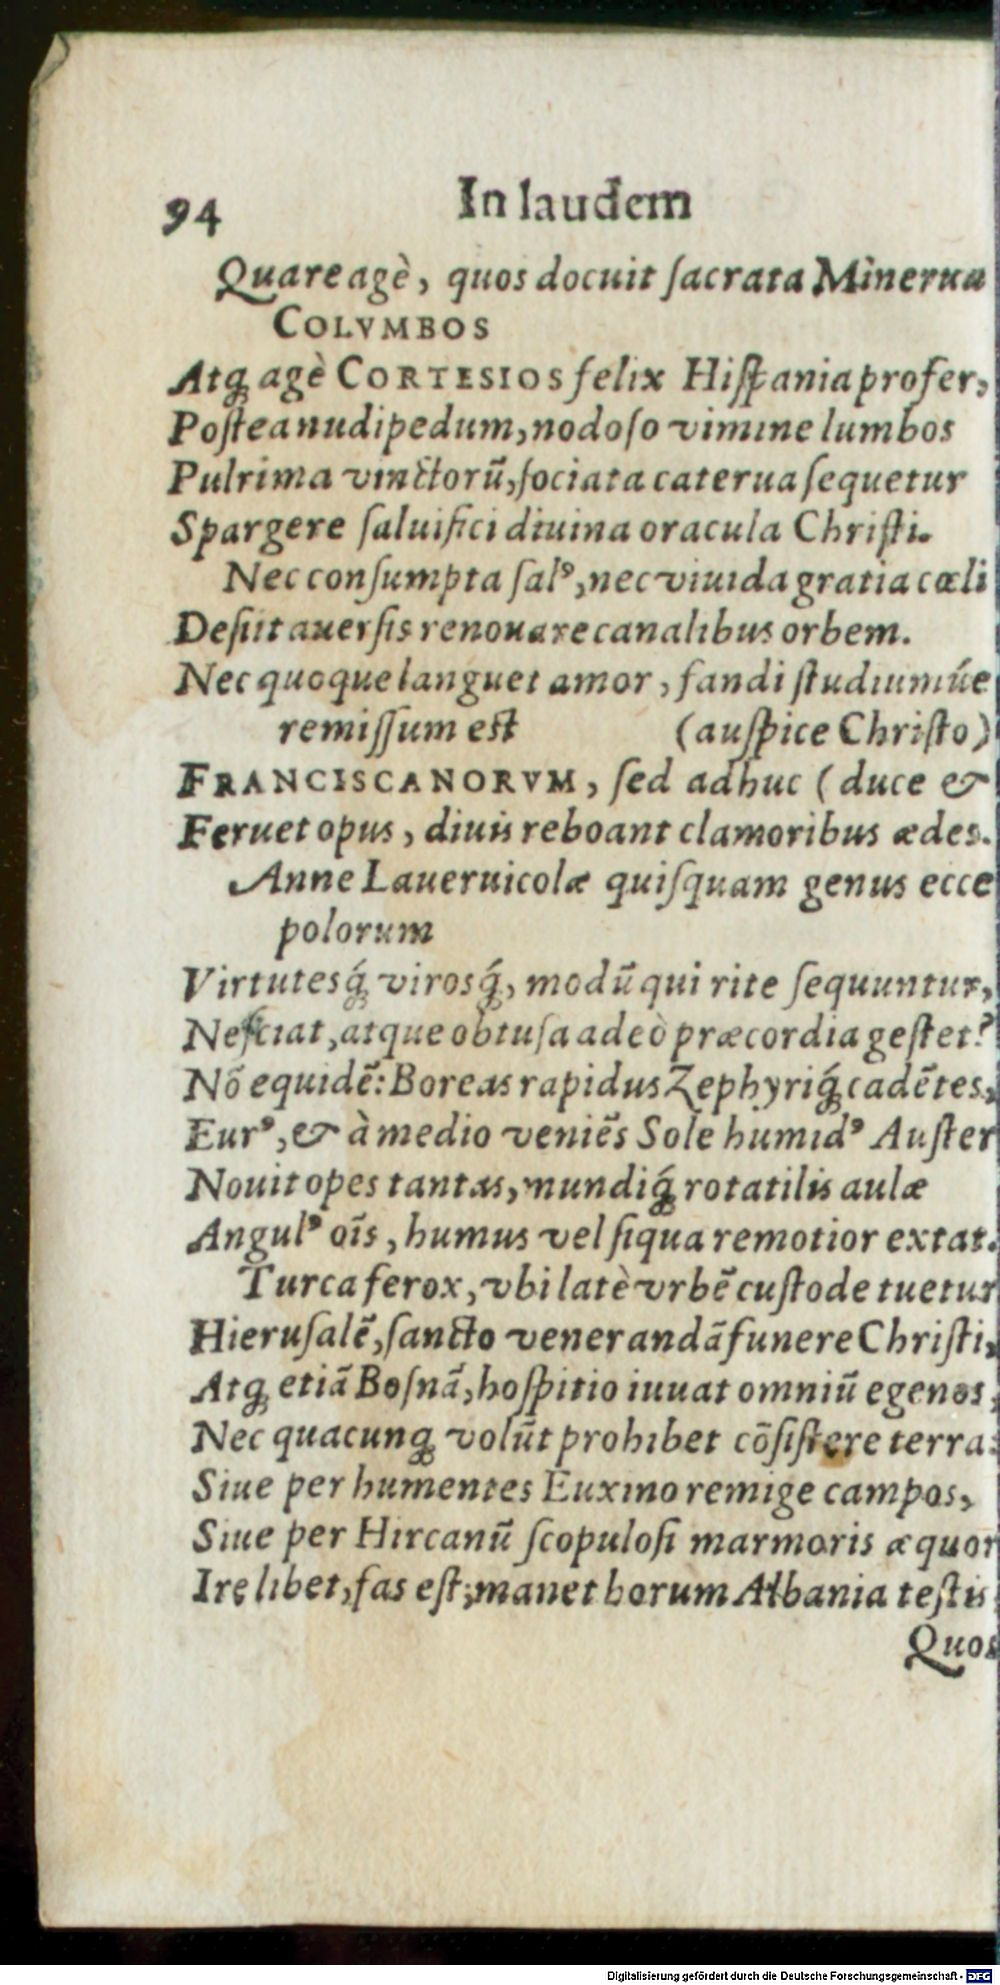 94 In laudem
Quare agè, quos docuit ſacrata Minerua
COLVMBOS
Atq; agè CORTESIOS felix Hiſpania profer,
Poſtea nudipedum, nodoſo vimine lumbos
Pulrima vinctorū, ſociata caterua ſequetur
Spargere ſaluifici diuina oracula Chriſti.
Nec conſumpta salꝰ, nec viuida gratia cœli
Deſiit auerſis renouare canalibus orbem.
Nec quoque languet amor, fandi ſtudiumúe
remiſſum est (auſpice Chriſto)
FRANCISCANORVM, ſed adhuc (duce &
Feruet opus, diuis reboant clamoribus ædes.
Anne Lauernicolæ quiſquam genus ecce
polorum
Virtutesq́; virosq́;, modū qui rite ſequuntur,
Neſciat, atque obtuſa adeò præcordia geſtet?
Nō equidē: Boreas rapidus Zephyriq́; cadētes,
Eurꝰ, & à medio veniēs Sole humidꝰ Auſter
Nouit opes tantas, mundiq́; rotatilis aulæ
Angulꝰ oīs, humus vel ſiqua remotior extat.
Turca ferox, vbi latè vrbē cuſtode tuetur
Hieruſalē, ſancto venerandā funere Chriſti,
Atq; etiā Boſnā, hoſpitio iuuat omniū egenos,
Nec quacunq; volūt prohibet cōſiſtere terra:
Siue per humentes Euxino remige campos,
Siue per Hircanū ſcopuloſi marmoris æquor
Ire libet, fas eſt; manet horum Albania teſtis
Quos
Digitalisierung gefördert durch die Deutsche Forschungsgemeinschaft - DFG